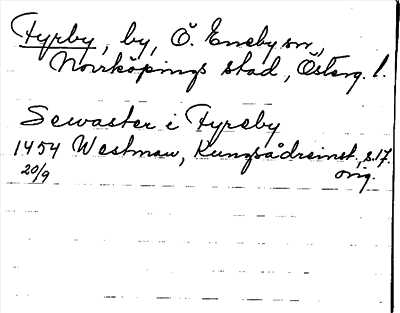 Fyrby, by, Ö. Eneby sn,
Norrköpings stad, Österg. l.
Sewaster i Fyreby
1454 Westman, Kungsådreinst., s. 17.
20/9 orig.